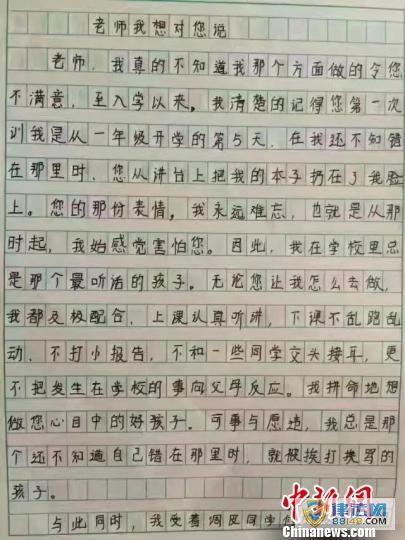 老师我想对您说
老师，我真的不知道我那个方面做的令您
不满意，至入学以来。我清楚的记得您第一次
训我是从一年级开学的第5天，在我还不知错
在那里时，您从讲台上把我的本子扔在了我脸
上。您的那份表情，我永远难忘，也就是从那
时起，我始感觉害怕您。因此，我在学校里总
是那个最听话的孩子。无论您让我怎么去做，
我都及极配合，上课认真听讲，下课不乱跑乱
动，不打小报告，不和一些同学交头接耳，更
不把发生在学校的事向父母反应。我拼命地想
做您心目中的好孩子。可事与愿违，我总是那
个还不知道自己错在那里时，就被挨打挨骂的
孩子。
与此同时，我受着调皮同学
中新网
律法网
88148.com